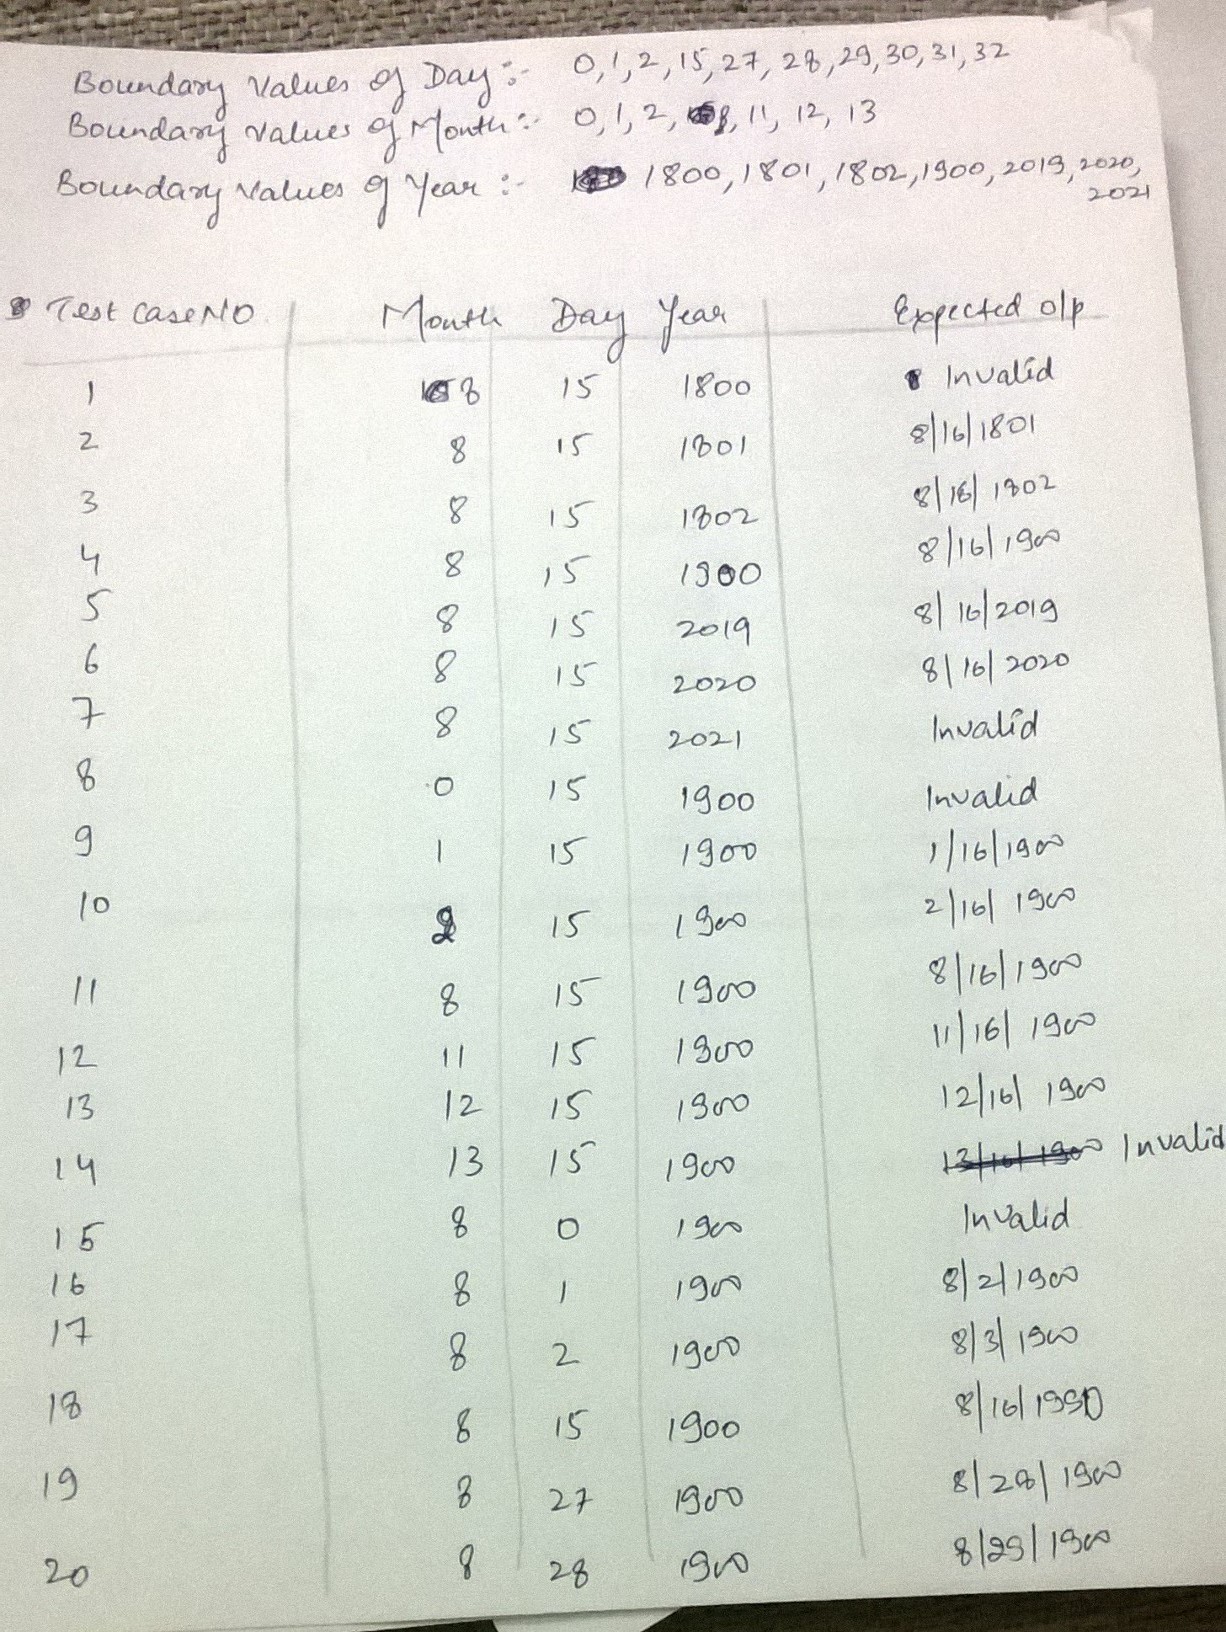 Boundary Values of Day :- 0, 1, 2, 15, 27, 28, 29, 30, 31, 32
Boundary values of Month :- 0, 1, 2, 8, 11, 12, 13
Boundary values of Year :- 1800, 1801, 1802, 1900, 2019, 2020,
2021
Test Case NO. Month Day Year Expected o/p
1 8 15 1800 Invalid
2 8 15 1801 8/16/1801
3 8 15 1802 8/16/1802
4 8 15 1900 8/16/1900
5 8 15 2019 8/16/2019
6 8 15 2020 8/16/2020
7 8 15 2021 Invalid
8 0 15 1900 Invalid
9 1 15 1900 1/16/1900
10 2 15 1900 2/16/1900
11 8 15 1900 8/16/1900
12 11 15 1900 11/16/1900
13 12 15 1900 12/16/1900
14 13 15 1900 13/16/1900 Invalid
15 8 0 1900 Invalid
16 8 1 1900 8/2/1900
17 8 2 1900 8/3/1900
18 8 15 1900 8/16/1990
19 8 27 1900 8/28/1900
20 8 28 1900 8/29/1900